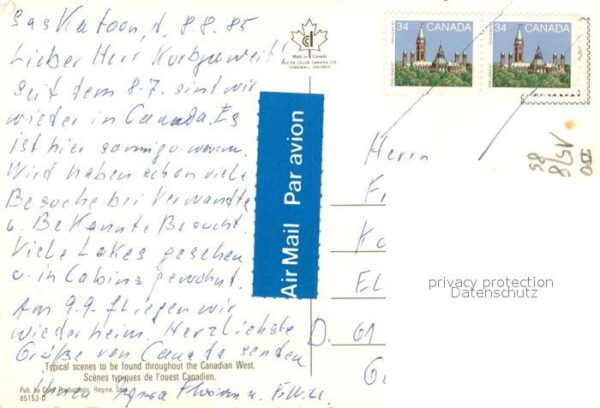 Saskatoon, d. 8.8.85
Lieber Herr
Seit dem 8.7. sind wir
wieder in Canada. Es
ist hier sonnig u. warm.
Wird haben schon viele
Besuche bei Verwandte
u. Bekannte Besucht.
Viele Lakes gesehen
u. in Cabins gewohnt.
Am 9.9. fliegen wir
wieder heim. Herzlichste
Grüße von Canada senden
Typical scenes to be found throughout the Canadian West.
Scènes typiques de l'ouest Canadien.
Pub. by Productions, Regina, Sask.
85153 D
Made in Canada
CORNWALL, ONTARIO
Air Mail Par avion
34 CANADA
34 CANADA
Herrn
F
K
El
D. 61
privacy protection
Datenschutz